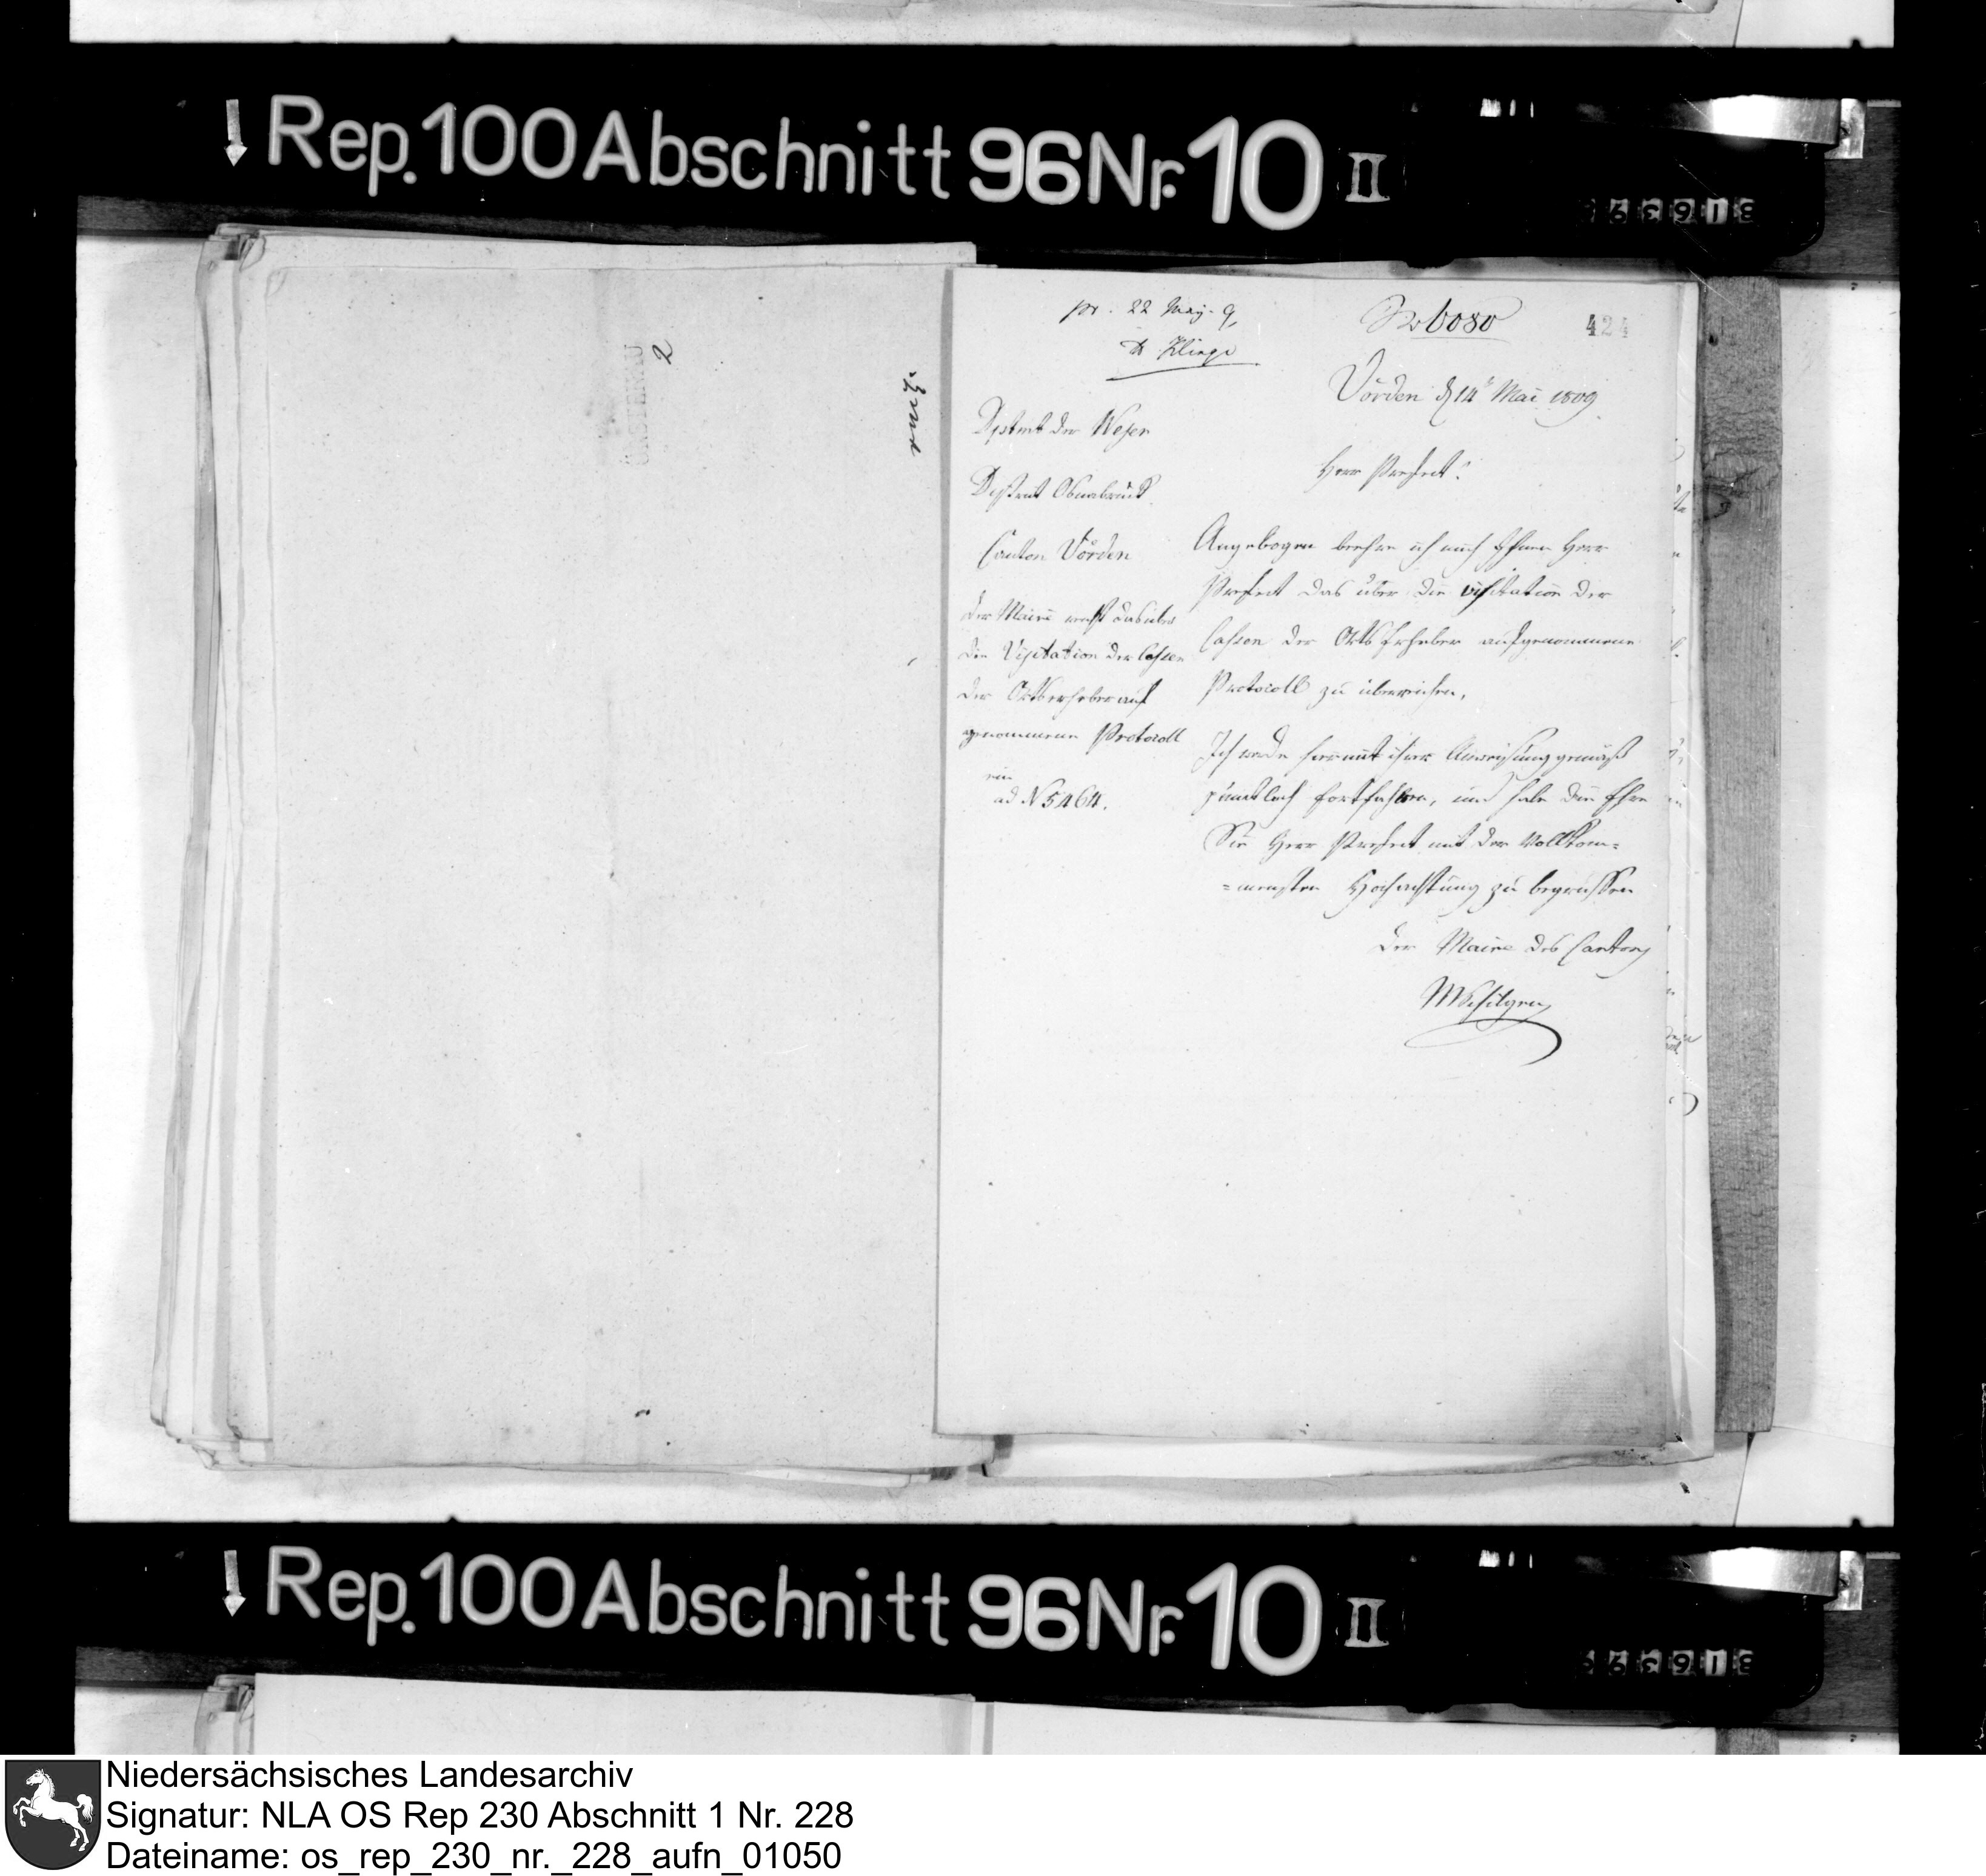 Rep. 100 Abschnitt 96 Nr. 10 II
pr. 22 May. 9,
No 6080
424
Vörden d 14t Mai 1809.
Deptmt der Weser
District Osnabrück
Canton Vörden
Der Maire
die Visitation der Cassen
der Ortserheber auf
genommene Protocoll
ein
ad N 5464.
Herr Praefect!
Angebogen beehre ich mich Ihnen Herr
Praefect das über die visitation der
Cassen der Orts Erheber aufgenommene
Protocoll zu überreichen,
Ich werde hiermit ihrer Anweisung gemäß
pünktlich fortfahren, und habe die Ehre
Sie Herr Praefect mit der Vollkom=
=mensten Hochachtung zu begrüssen
Der Maire des Cantons
2
Rep. 100 Abschnitt 96 Nr. 10 II
Niedersächsisches Landesarchiv
Signatur: NLA OS Rep 230 Abschnitt 1 Nr. 228
Dateiname: os_rep_230_nr._228_aufn_01050